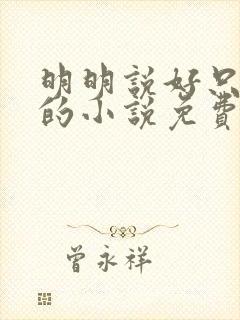 明明說好只
的小說免費
曾永祥